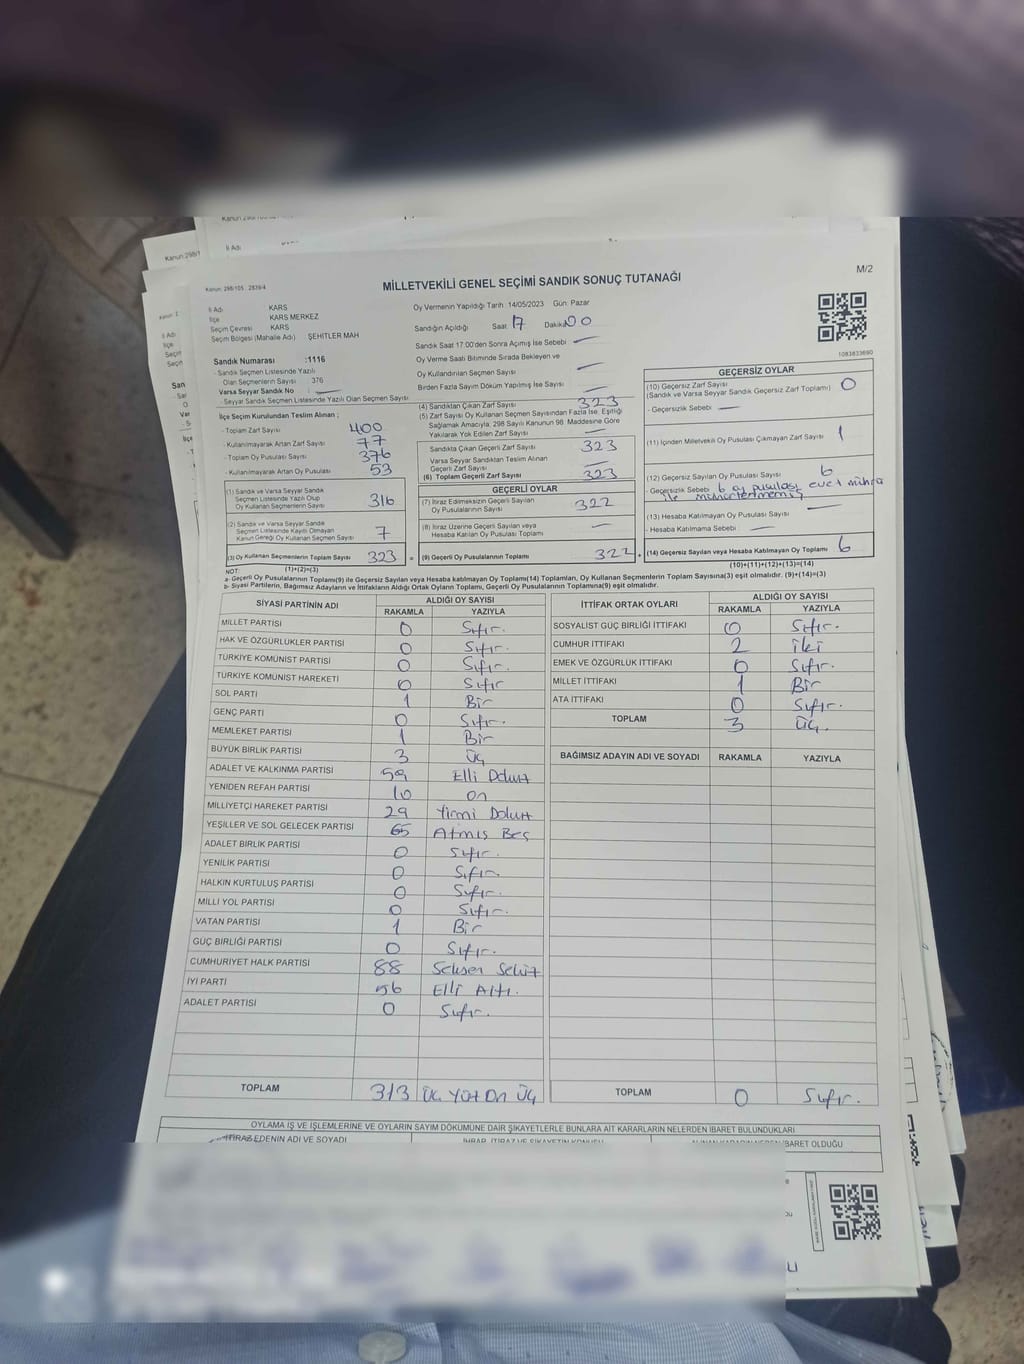 Kanun 298/1
İl Adı
Kanun: 298/105 , 2839/4
MİLLETVEKİLİ GENEL SEÇİMİ SANDIK SONUÇ TUTANAĞI
M/2
İl Adı KARS
İlçe KARS MERKEZ
Seçim Çevresi KARS
Seçim Bölgesi (Mahalle Adı) ŞEHİTLER MAH
Sandık Numarası :1116
- Sandık Seçmen Listesinde Yazılı
Olan Seçmenlerin Sayısı 376
Varsa Seyyar Sandık No
- Seyyar Sandık Listesinde Yazılı Olan Seçmen Sayısı
Oy Vermenin Yapıldığı Tarih 14/05/2023 Gün: Pazar
Sandığın Açıldığı Saat 17 Dakika 00
Sandık Saat 17:00'den Sonra Açılmış İse Sebebi
Oy Verme Saati Bitiminde Sırada Bekleyen ve
Oy Kullandırılan Seçmen Sayısı
Birden Fazla Sayım Döküm Yapılmış İse Sayısı
1083833690
İlçe Seçim Kurulundan Teslim Alınan ;
- Toplam Zarf Sayısı 400
- Kullanılmayarak Artan Zarf Sayısı 77
- Toplam Oy Pusulası Sayısı 376
- Kullanılmayarak Artan Oy Pusulası 53
(1) Sandık ve Varsa Seyyar Sandık
Seçmen Listesinde Yazılı Olup
Oy Kullanan Seçmenlerin Sayısı 316
(2) Sandık ve Varsa Seyyar Sandık
Seçmen Listesinde Kayıtlı Olmayan
Kanun Gereği Oy Kullanan Seçmen Sayısı 7
(3) Oy Kullanan Seçmenlerin Toplam Sayısı 323
(4) Sandıktan Çıkan Zarf Sayısı 323
(5) Zarf Sayısı Oy Kullanan Seçmen Sayısından Fazla İse, Eşitliği
Sağlamak Amacıyla, 298 Sayılı Kanunun 98. Maddesine Göre
Yakılarak Yok Edilen Zarf Sayısı
Sandıkta Çıkan Geçerli Zarf Sayısı 323
Varsa Seyyar Sandıktan Teslim Alınan
Geçerli Zarf Sayısı
(6) Toplam Geçerli Zarf Sayısı 323
GEÇERLİ OYLAR
(7) İtiraz Edilmeksizin Geçerli Sayılan
Oy Pusulalarının Sayısı 322
(8) İtiraz Üzerine Geçerli Sayılan veya
Hesaba Katılan Oy Pusulası Toplamı
= (9) Geçerli Oy Pusulalarının Toplamı 322 +
GEÇERSİZ OYLAR
(10) Geçersiz Zarf Sayısı 0
(Sandık ve Varsa Seyyar Sandık Geçersiz Zarf Toplamı)
- Geçersizlik Sebebi
(11) İçinden Milletvekili Oy Pusulası Çıkmayan Zarf Sayısı 1
(12) Geçersiz Sayılan Oy Pusulası Sayısı 6
- Geçersizlik Sebebi 6 oy pusulası evet mührü
ile mühürlenmemiş
(13) Hesaba Katılmayan Oy Pusulası Sayısı
- Hesaba Katılmama Sebebi
(14) Geçersiz Sayılan veya Hesaba Katılmayan Oy Toplamı 6
NOT: (1)+(2)=(3)
(10)+(11)+(12)+(13)=(14)
a- Geçerli Oy Pusulalarının Toplamı(9) ile Geçersiz Sayılan veya Hesaba katılmayan Oy Toplamı(14) Toplamları, Oy Kullanan Seçmenlerin Toplam Sayısına(3) eşit olmalıdır. (9)+(14)=(3)
b- Siyasi Partilerin, Bağımsız Adayların ve İttifakların Aldığı Ortak Oyların Toplamı, Geçerli Oy Pusulalarının Toplamına(9) eşit olmalıdır.
SİYASİ PARTİNİN ADI ALDIĞI OY SAYISI
RAKAMLA YAZIYLA
MİLLET PARTİSİ 0 Sıfır.
HAK VE ÖZGÜRLÜKLER PARTİSİ 0 Sıfır.
TÜRKİYE KOMÜNİST PARTİSİ 0 Sıfır.
TÜRKİYE KOMÜNİST HAREKETİ 0 Sıfır
SOL PARTİ 1 Bir
GENÇ PARTİ 0 Sıfır.
MEMLEKET PARTİSİ 1 Bir
BÜYÜK BİRLİK PARTİSİ 3 Üç
ADALET VE KALKINMA PARTİSİ 59 Elli Dokuz
YENİDEN REFAH PARTİSİ 10 On
MİLLİYETÇİ HAREKET PARTİSİ 29 Yirmi Dokuz
YEŞİLLER VE SOL GELECEK PARTİSİ 65 Atmış Beş
ADALET BİRLİK PARTİSİ 0 Sıfır.
YENİLİK PARTİSİ 0 Sıfır.
HALKIN KURTULUŞ PARTİSİ 0 Sıfır.
MİLLİ YOL PARTİSİ 0 Sıfır.
VATAN PARTİSİ 1 Bir
GÜÇ BİRLİĞİ PARTİSİ 0 Sıfır.
CUMHURİYET HALK PARTİSİ 88 Seksen Sekiz
İYİ PARTİ 56 Elli Altı.
ADALET PARTİSİ 0 Sıfır.
TOPLAM 313 Üç Yüz On Üç
İTTİFAK ORTAK OYLARI ALDIĞI OY SAYISI
RAKAMLA YAZIYLA
SOSYALİST GÜÇ BİRLİĞİ İTTİFAKI 0 Sıfır.
CUMHUR İTTİFAKI 2 İki
EMEK VE ÖZGÜRLÜK İTTİFAKI 0 Sıfır.
MİLLET İTTİFAKI 1 Bir
ATA İTTİFAKI 0 Sıfır.
TOPLAM 3 Üç.
BAĞIMSIZ ADAYIN ADI VE SOYADI RAKAMLA YAZIYLA
TOPLAM 0 Sıfır.
OYLAMA İŞ VE İŞLEMLERİNE VE OYLARIN SAYIM DÖKÜMÜNE DAİR ŞİKAYETLERLE BUNLARA AİT KARARLARIN NELERDEN İBARET BULUNDUKLARI
İTİRAZ EDENİN ADI VE SOYADI
İBARET OLDUĞU